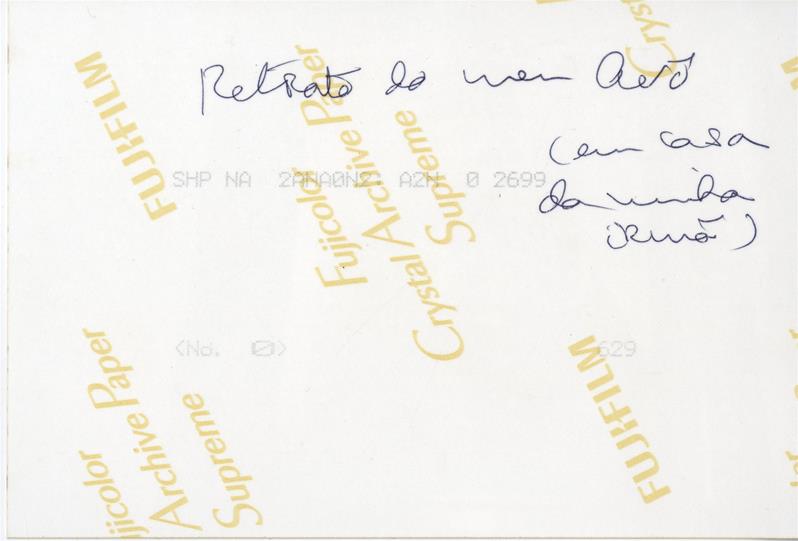 Retrato do meu Avô
(em casa
da minha
irmã)
FUJIFILM
Fujicolor Paper
Crystal Archive
Supreme
Crystal
SHP NA 2ANA0N2: A2N 0 2699
<No. 0>
629
Fujicolor
Archive Paper
Supreme
FUJIFILM